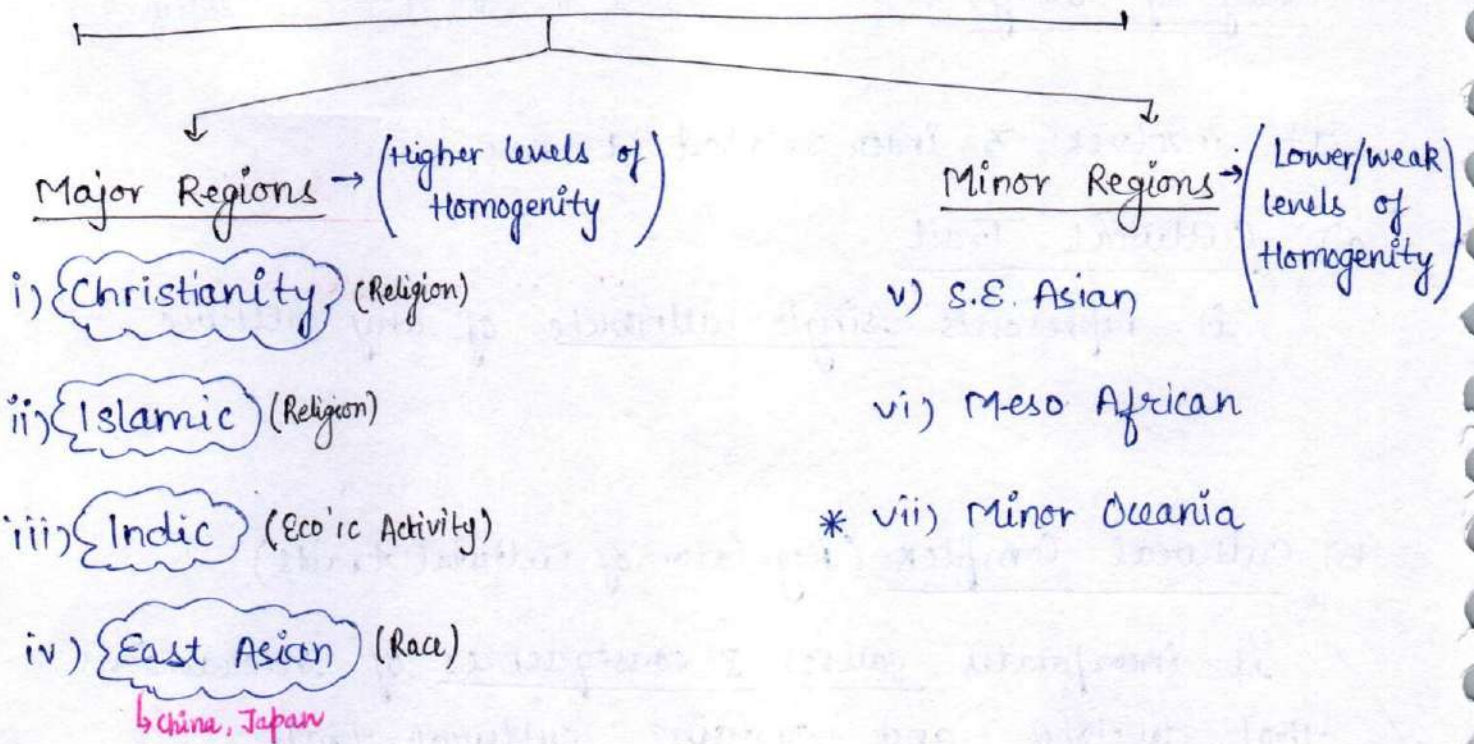 Major Regions → (Higher levels of Homogenity)
i) Christianity (Religion)
ii) Islamic (Religion)
iii) Indic (Eco'ic Activity)
iv) East Asian (Race)
↳ China, Japan
Minor Regions → (Lower/weak levels of Homogenity)
v) S.E. Asian
vi) Meso African
* vii) Minor Oceania